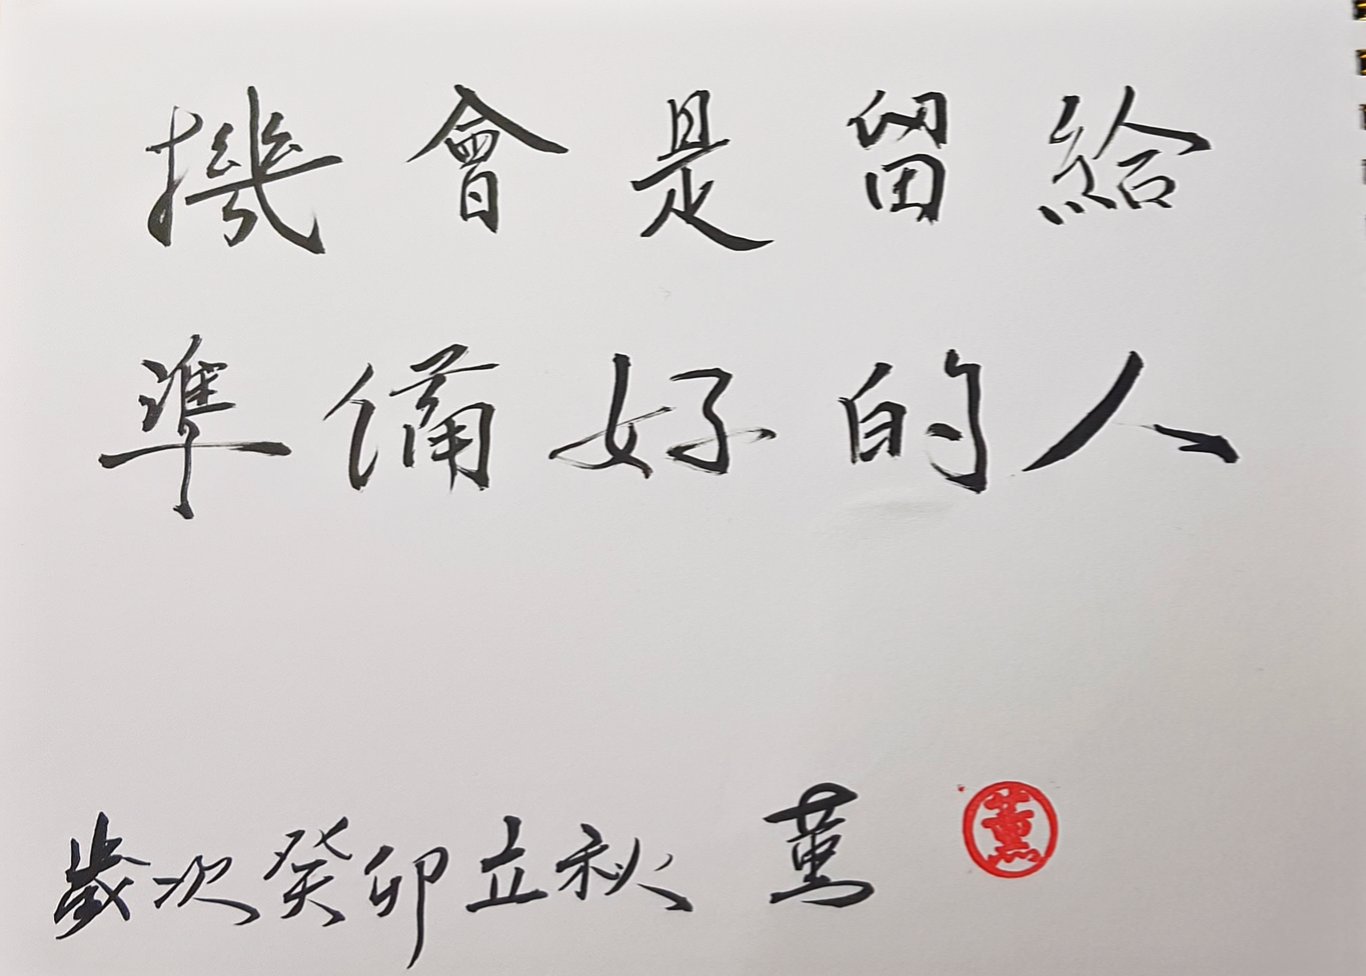 機會是留給
準備好的人
歲次癸卯立秋 薰
薰